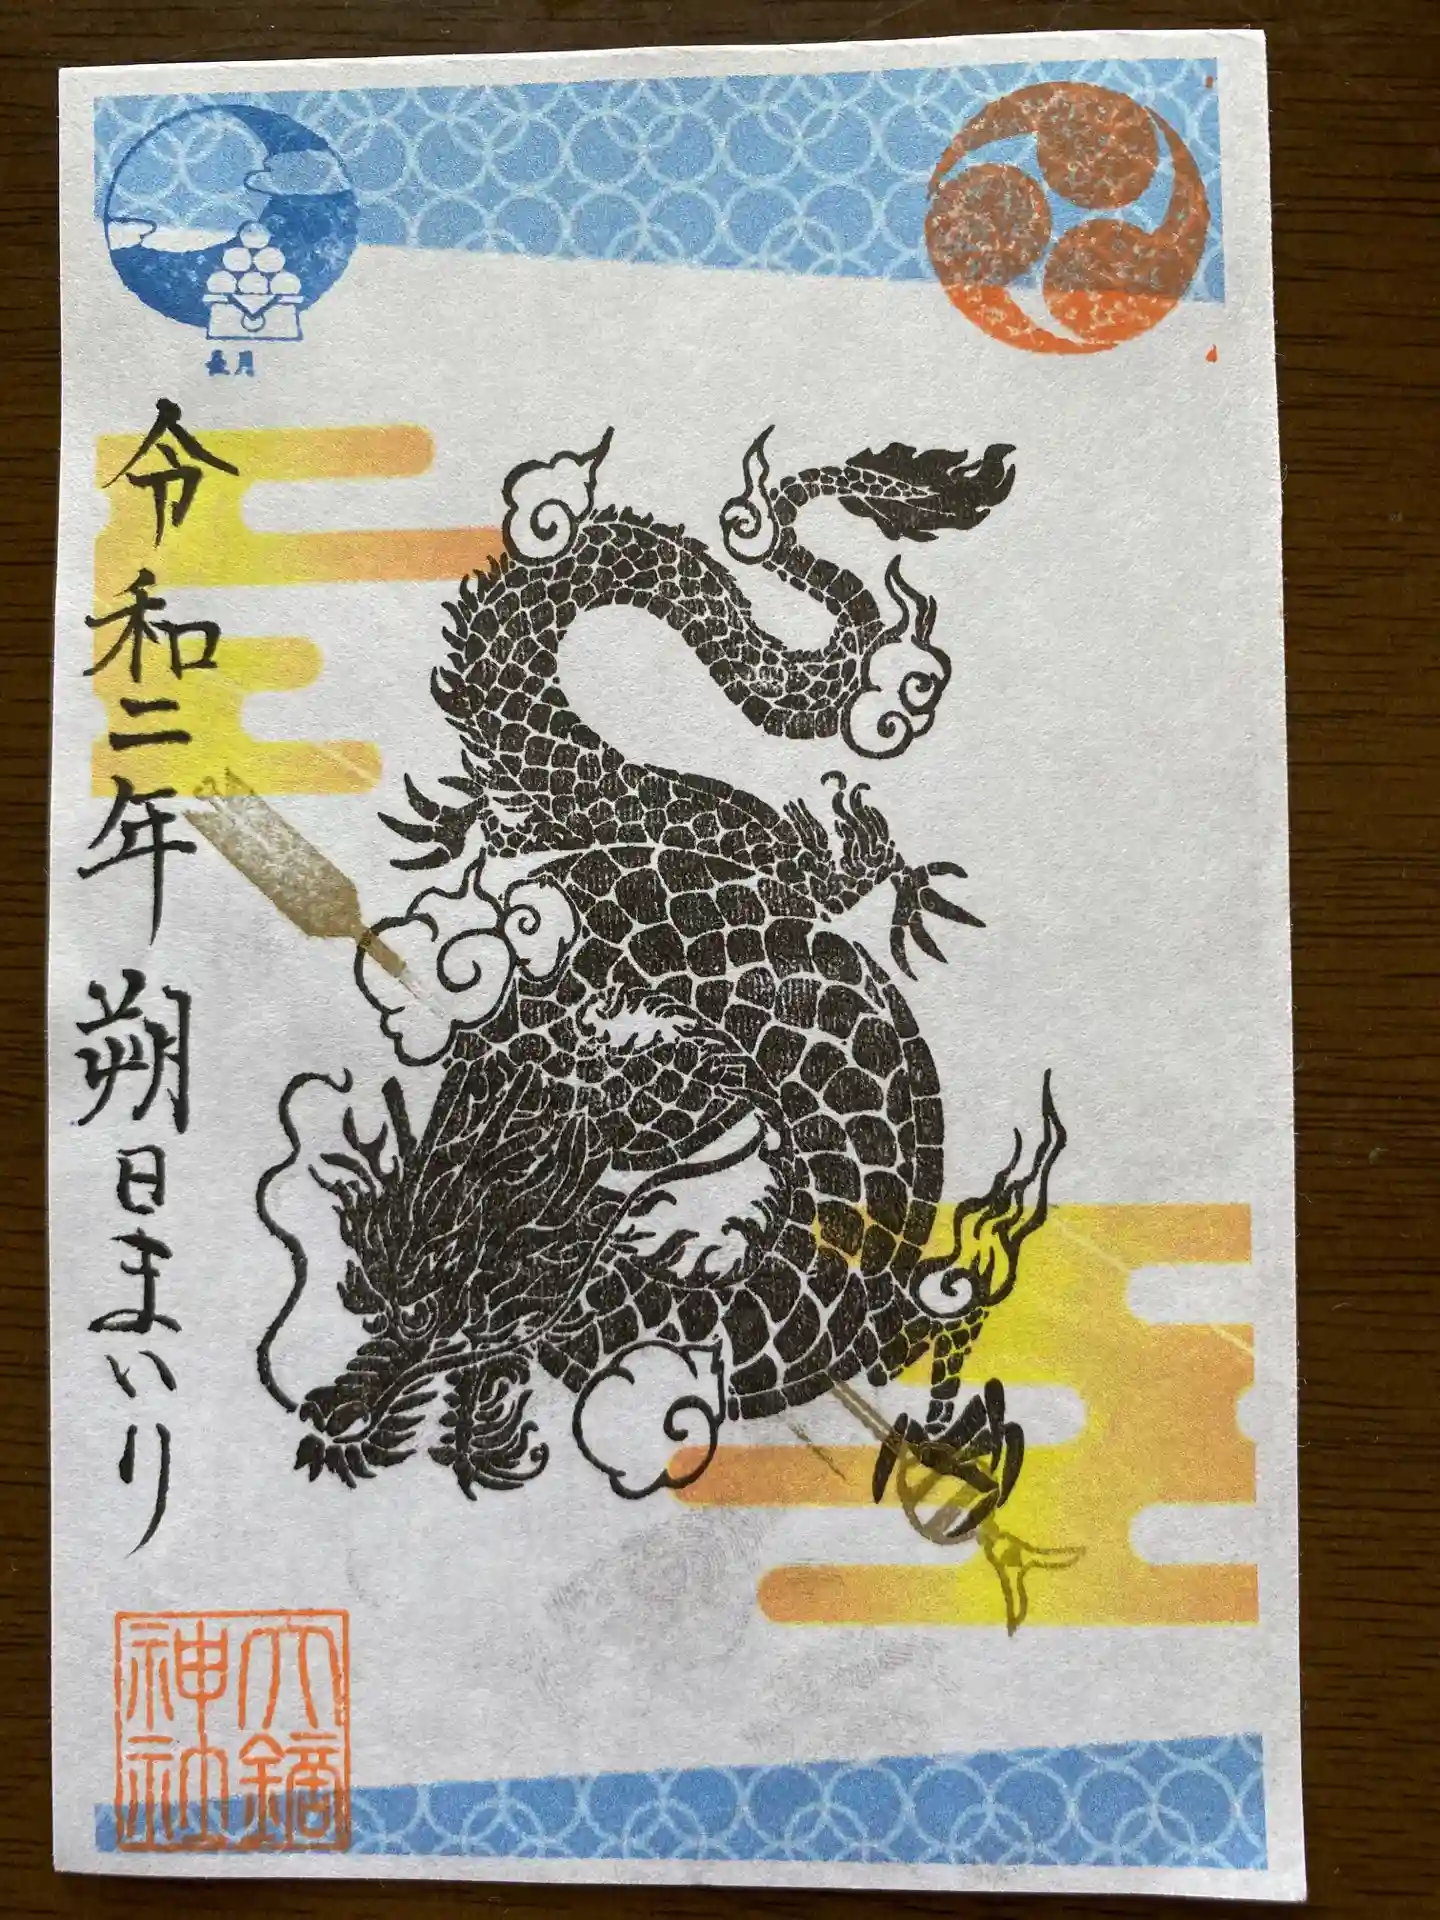 長月
令和二年 朔日まいり
大鏑
神社